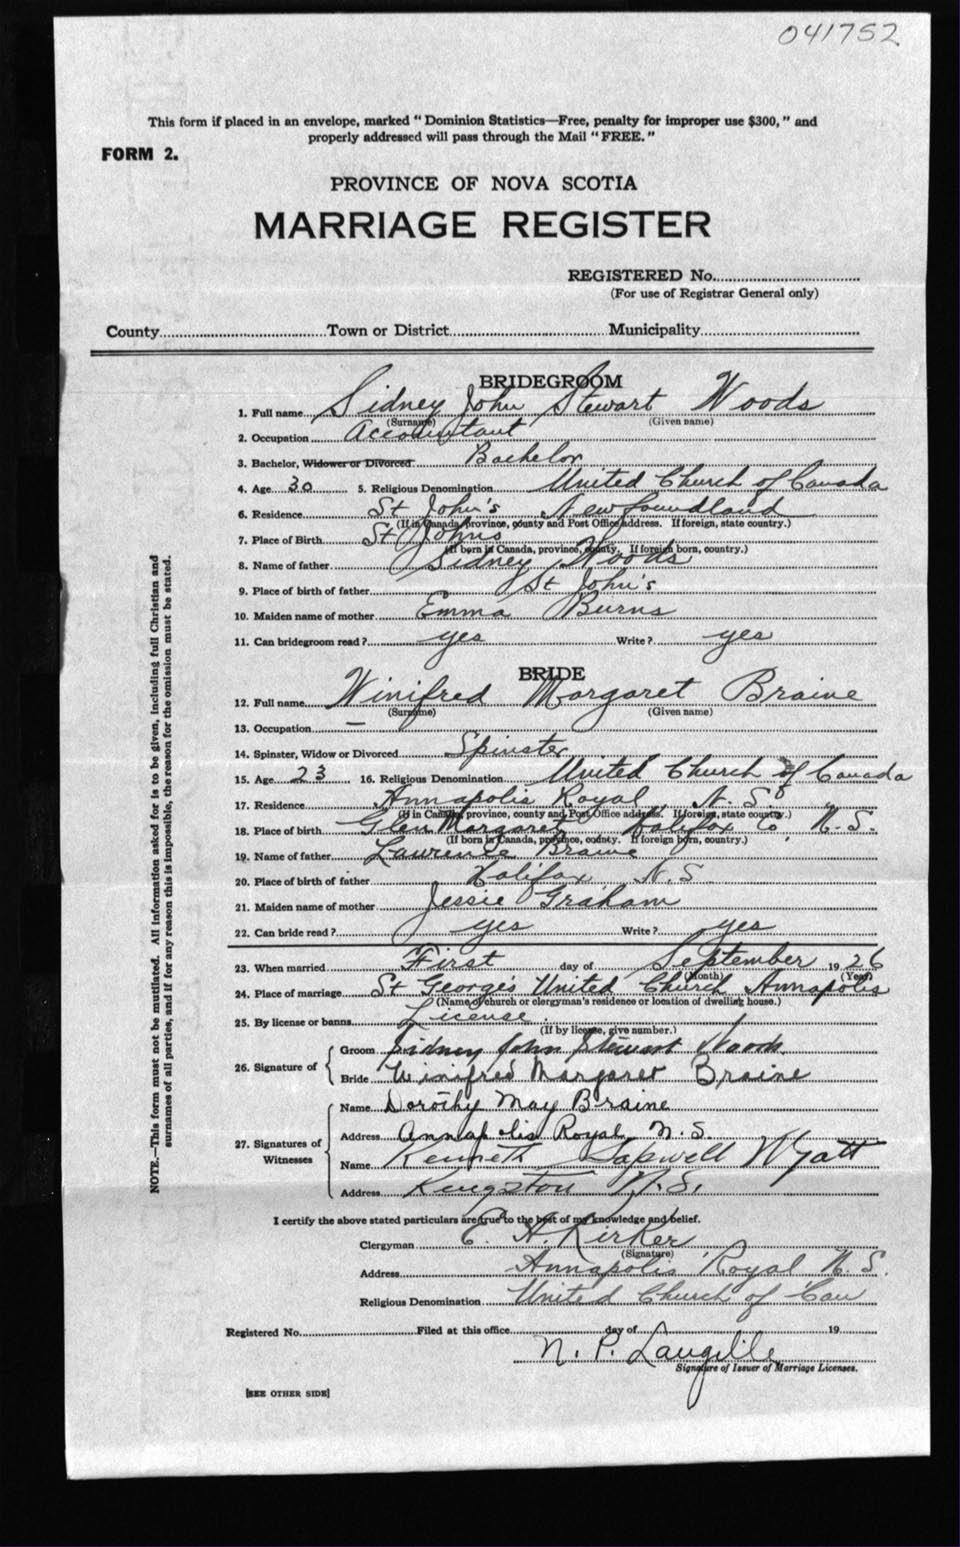 041752
This form if placed in an envelope, marked "Dominion Statistics—Free, penalty for improper use $300," and
properly addressed will pass through the Mail "FREE."
FORM 2.
PROVINCE OF NOVA SCOTIA
MARRIAGE REGISTER
REGISTERED No.
(For use of Registrar General only)
County Town or District Municipality
BRIDEGROOM
1. Full name Sidney John Stewart Woods
(Surname) (Given name)
2. Occupation Accountant
3. Bachelor, Widower or Divorced Bachelor
4. Age 30 5. Religious Denomination United Church of Canada
6. Residence St John's Newfoundland
(If in Canada, province, county and Post Office address. If foreign, state country.)
7. Place of Birth St Johns
(If born in Canada, province, county. If foreign born, country.)
8. Name of father Sidney Woods
9. Place of birth of father St John's
10. Maiden name of mother Emma Burns
11. Can bridegroom read? yes Write? yes
BRIDE
12. Full name Winifred Margaret Braine
(Surname) (Given name)
13. Occupation —
14. Spinster, Widow or Divorced Spinster
15. Age 23 16. Religious Denomination United Church of Canada
17. Residence Annapolis Royal, N.S.
(If in Canada, province, county and Post Office address. If foreign, state country.)
18. Place of birth Glen Margaret, Halifax Co, N.S.
(If born in Canada, province, county. If foreign born, country.)
19. Name of father Lawrence Braine
20. Place of birth of father Halifax, N.S.
21. Maiden name of mother Jessie Graham
22. Can bride read? yes Write? yes
23. When married First day of September 1926
(Month) (Year)
24. Place of marriage St George's United Church Annapolis
(Name of church or clergyman's residence or location of dwelling house.)
25. By license or banns License
(If by license, give number.)
26. Signature of
Groom Sidney John Stewart Woods
Bride Winifred Margaret Braine
27. Signatures of Witnesses
Name Dorothy May Braine
Address Annapolis Royal N.S.
Name Kenneth Sapwell Wyatt
Address Kingston N.S.
I certify the above stated particulars are true to the best of my knowledge and belief.
Clergyman E. A. Kirker
(Signature)
Address Annapolis Royal N.S.
Religious Denomination United Church of Can
Registered No. Filed at this office day of 19
N. P. Langille
Signature of Issuer of Marriage Licenses.
[SEE OTHER SIDE]
NOTE.—This form must not be mutilated. All information asked for is to be given, including full Christian and
surnames of all parties, and if for any reason this is impossible, the reason for the omission must be stated.